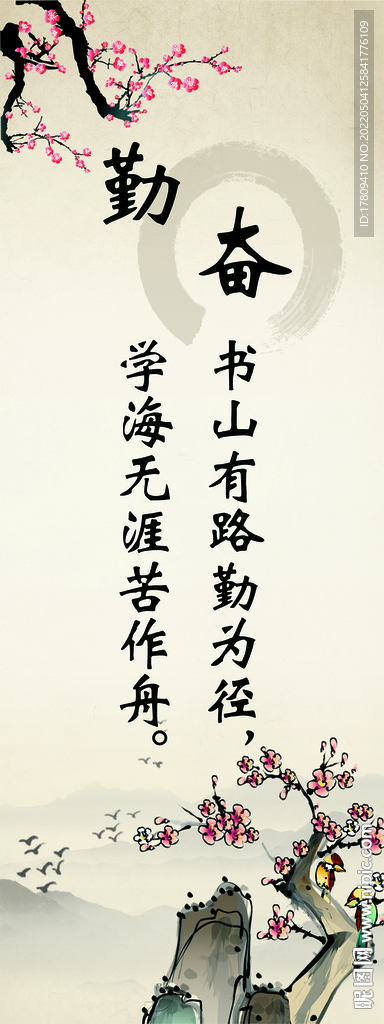 勤
奋
书山有路勤为径，
学海无涯苦作舟。
ID:17809410 NO:20220504125841776109
昵图网 www.nipic.com